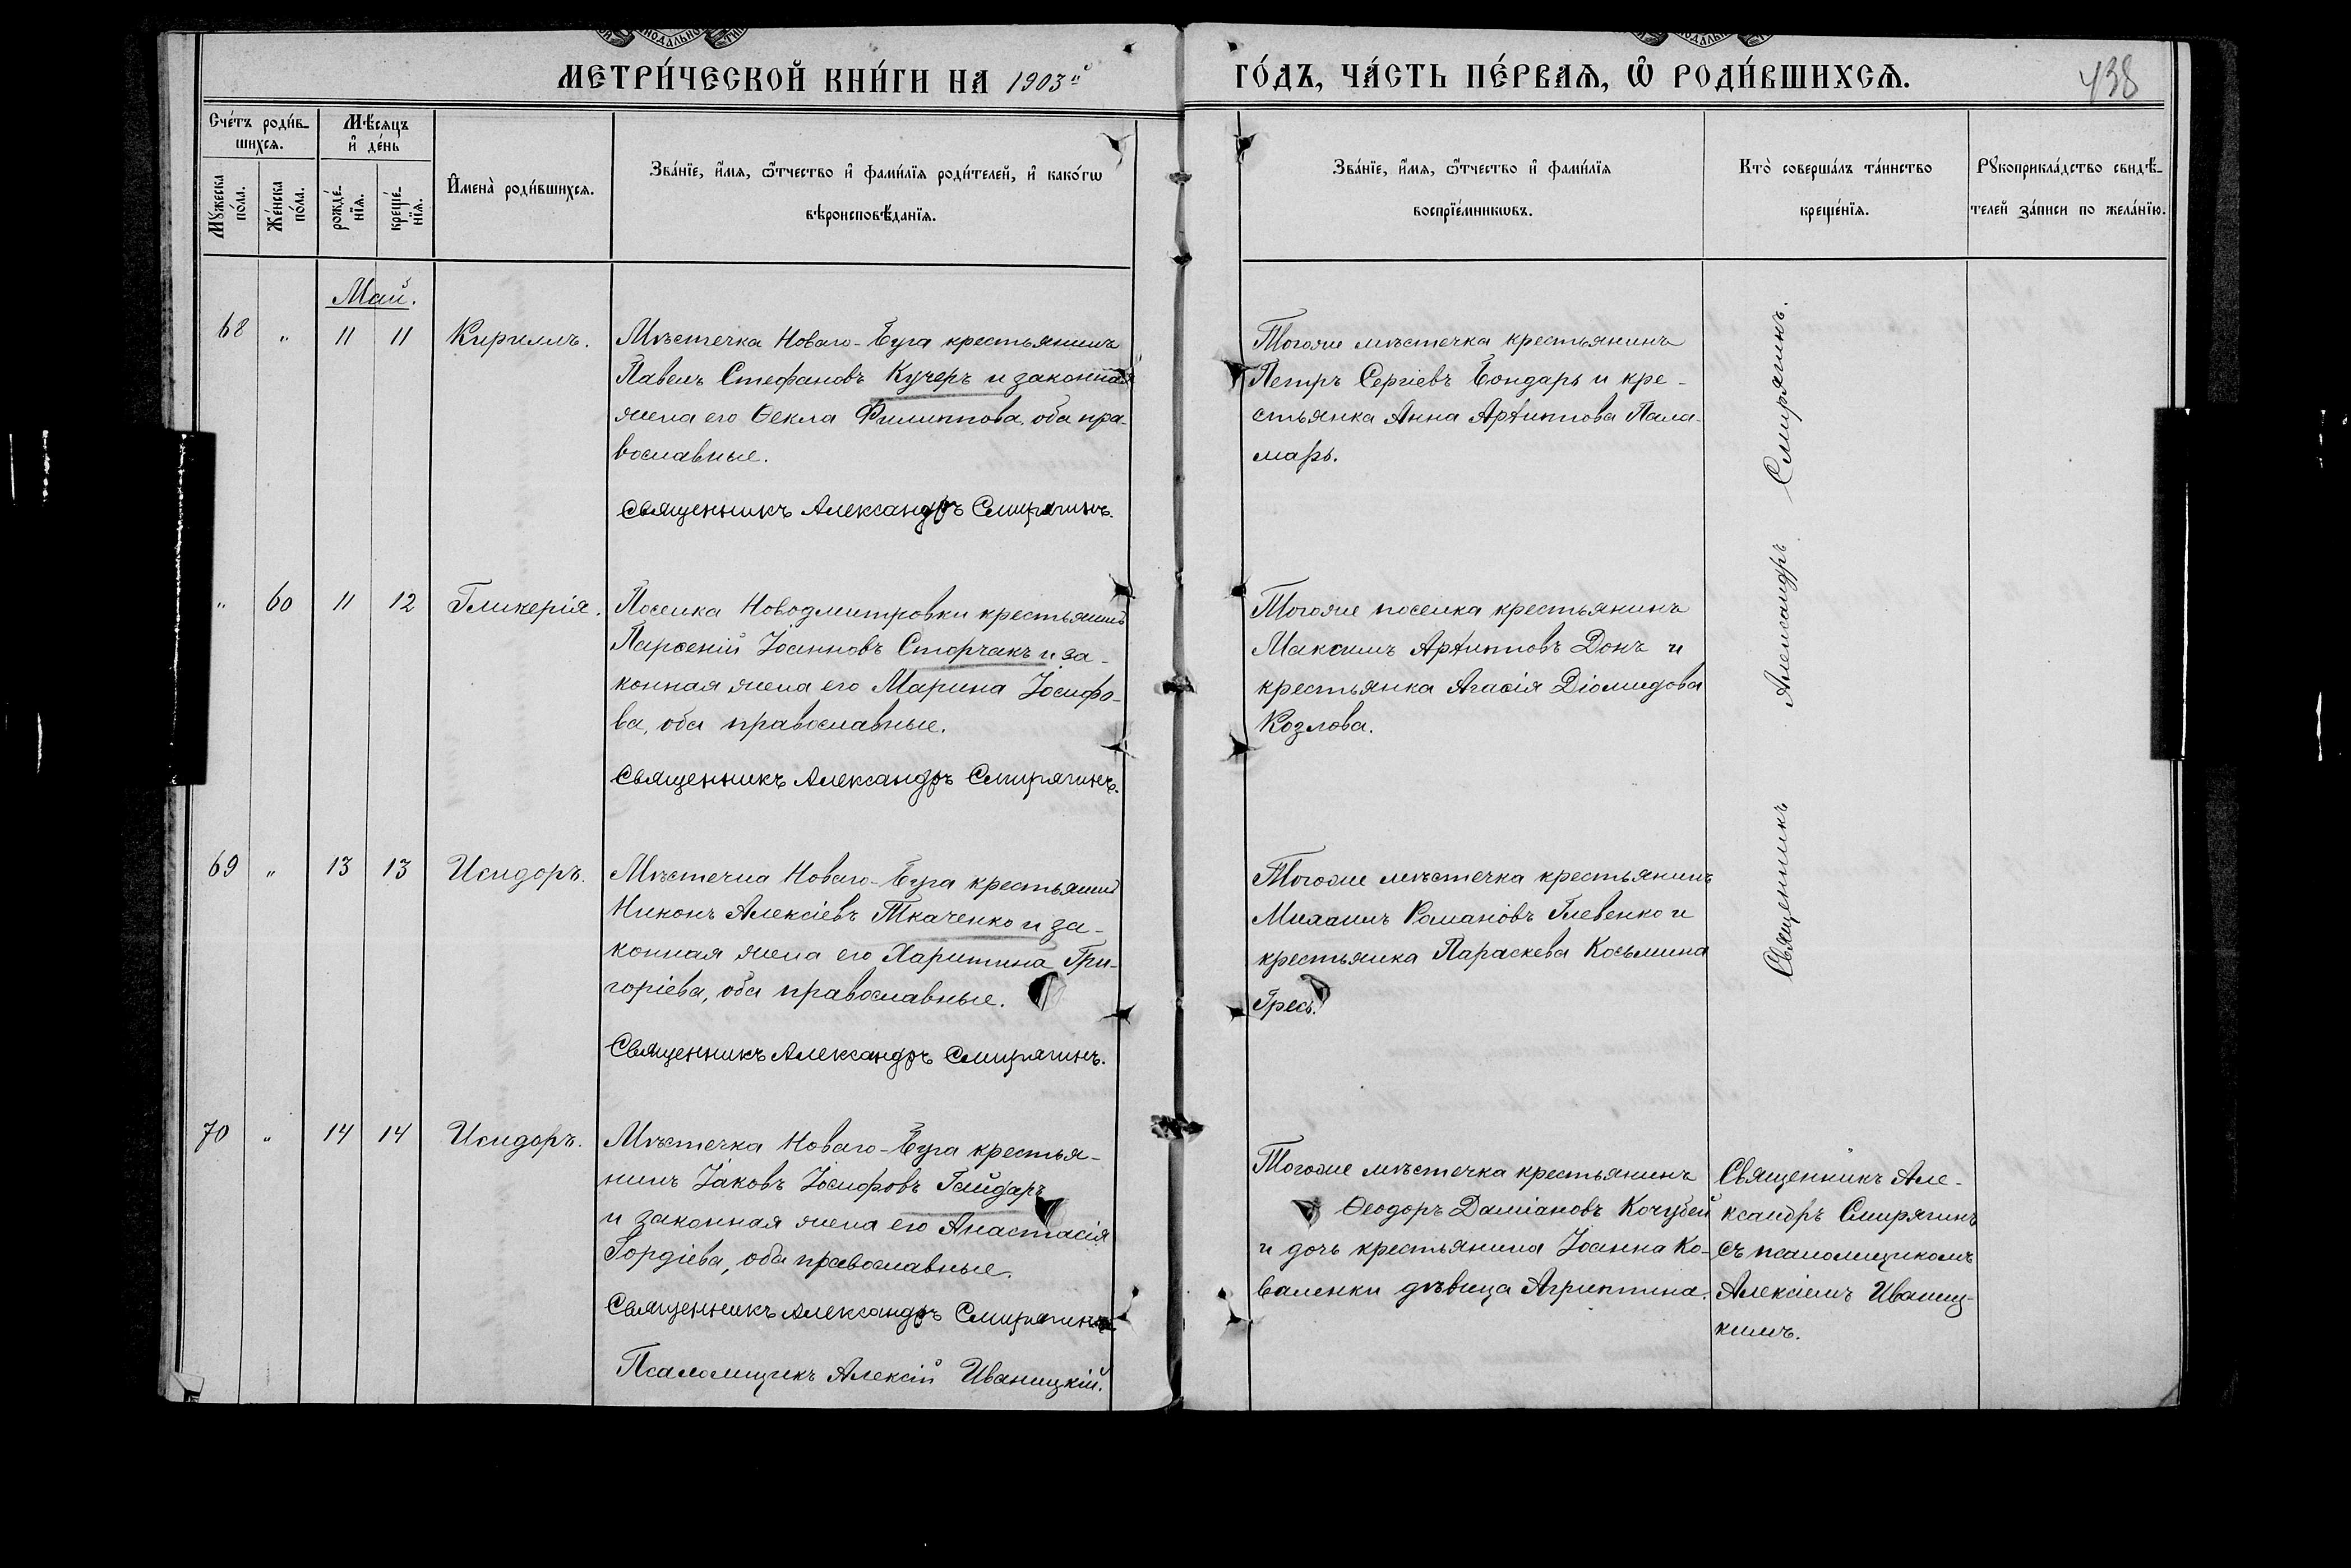 МЕТРИ́ЧЕСКОЙ КНИ́ГИ НА 1903й
ГО́ДЪ, ЧА́СТЬ ПЕ́РВАѦ, Ѽ РОДИ́ВШИХСѦ.
438
Сче́тъ роди́в-
шихсѧ.
Мѣ́сѧцъ
и҆ де́нь
Мꙋ́жеска
по́ла.
Же́нска
по́ла.
рожде́-
нїѧ.
креще́-
нїѧ.
И҆мена̀ роди́вшихсѧ.
Зва́нїе, и҆́мѧ, ѻ҆́тчество и҆ фами́лїѧ роди́телей, и҆ како́гѡ
вѣроисповѣ́данїѧ.
Зва́нїе, и҆́мѧ, ѻ҆́тчество и҆ фами́лїѧ
воспрїе́мникѡвъ.
Кто̀ соверша́лъ та́инство
креще́нїѧ.
Рꙋкоприкла́дство свидѣ́-
телей за́писи по жела́нїю.
Май.
68 " 11 11 Кириллъ.
Мѣстечка Новаго-Буга крестьянинъ
Павелъ Стефановъ Кучеръ и законная
жена его Ѳекла Филиппова, оба пра-
вославные.
Священникъ Александръ Смирягинъ.
Тогоже мѣстечка крестьянинъ
Петръ Сергіевъ Бондарь и кре-
стьянка Анна Архиппова Пала-
марь.
" 60 11 12 Гликерія.
Поселка Новодмитровки крестьянинъ
Парѳеній Іоанновъ Сторчакъ и за-
конная жена его Марина Іосифо-
ва, оба православные.
Священникъ Александръ Смирягинъ.
Тогоже поселка крестьянинъ
Максимъ Архипповъ Донъ и
крестьянка Агаѳія Діомидова
Козлова.
69 " 13 13 Исидоръ.
Мѣстечка Новаго-Буга крестьянинъ
Никонъ Алексіевъ Ткаченко и за-
конная жена его Харитина Гри-
горіева, оба православные.
Священникъ Александръ Смирягинъ.
Тогоже мѣстечка крестьянинъ
Михаилъ Романовъ Глевенко и
крестьянка Параскева Косьмина
Гресь.
Священникъ Александръ Смирягинъ.
70 " 14 14 Исидоръ.
Мѣстечка Новаго-Буга крестья-
нинъ Іаковъ Іосифовъ Гайдаръ
и законная жена его Анастасія
Гордіева, оба православные.
Священникъ Александръ Смирягинъ
Псаломщикъ Алексій Иваницкій.
Тогоже мѣстечка крестьянинъ
Ѳеодоръ Даміановъ Кочубей
и дочь крестьянина Іоанна Ко-
валенки дѣвица Агриппина.
Священникъ Але-
ксандръ Смирягинъ
съ псаломщикомъ
Алексіемъ Иваниц-
кимъ.